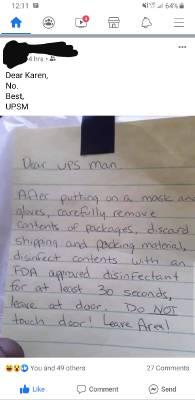 12:11
64%
4 hrs
Dear Karen,
No.
Best,
UPSM
Dear UPS man.
After putting on a mask and
gloves, carefully remove
contents of packages, discard
shipping and packing material,
disinfect contents with an
FDA approved disinfectant
for at least 30 seconds,
leave at door. Do NOT
touch door! Leave Area!
You and 49 others
27 Comments
Like
Comment
Send